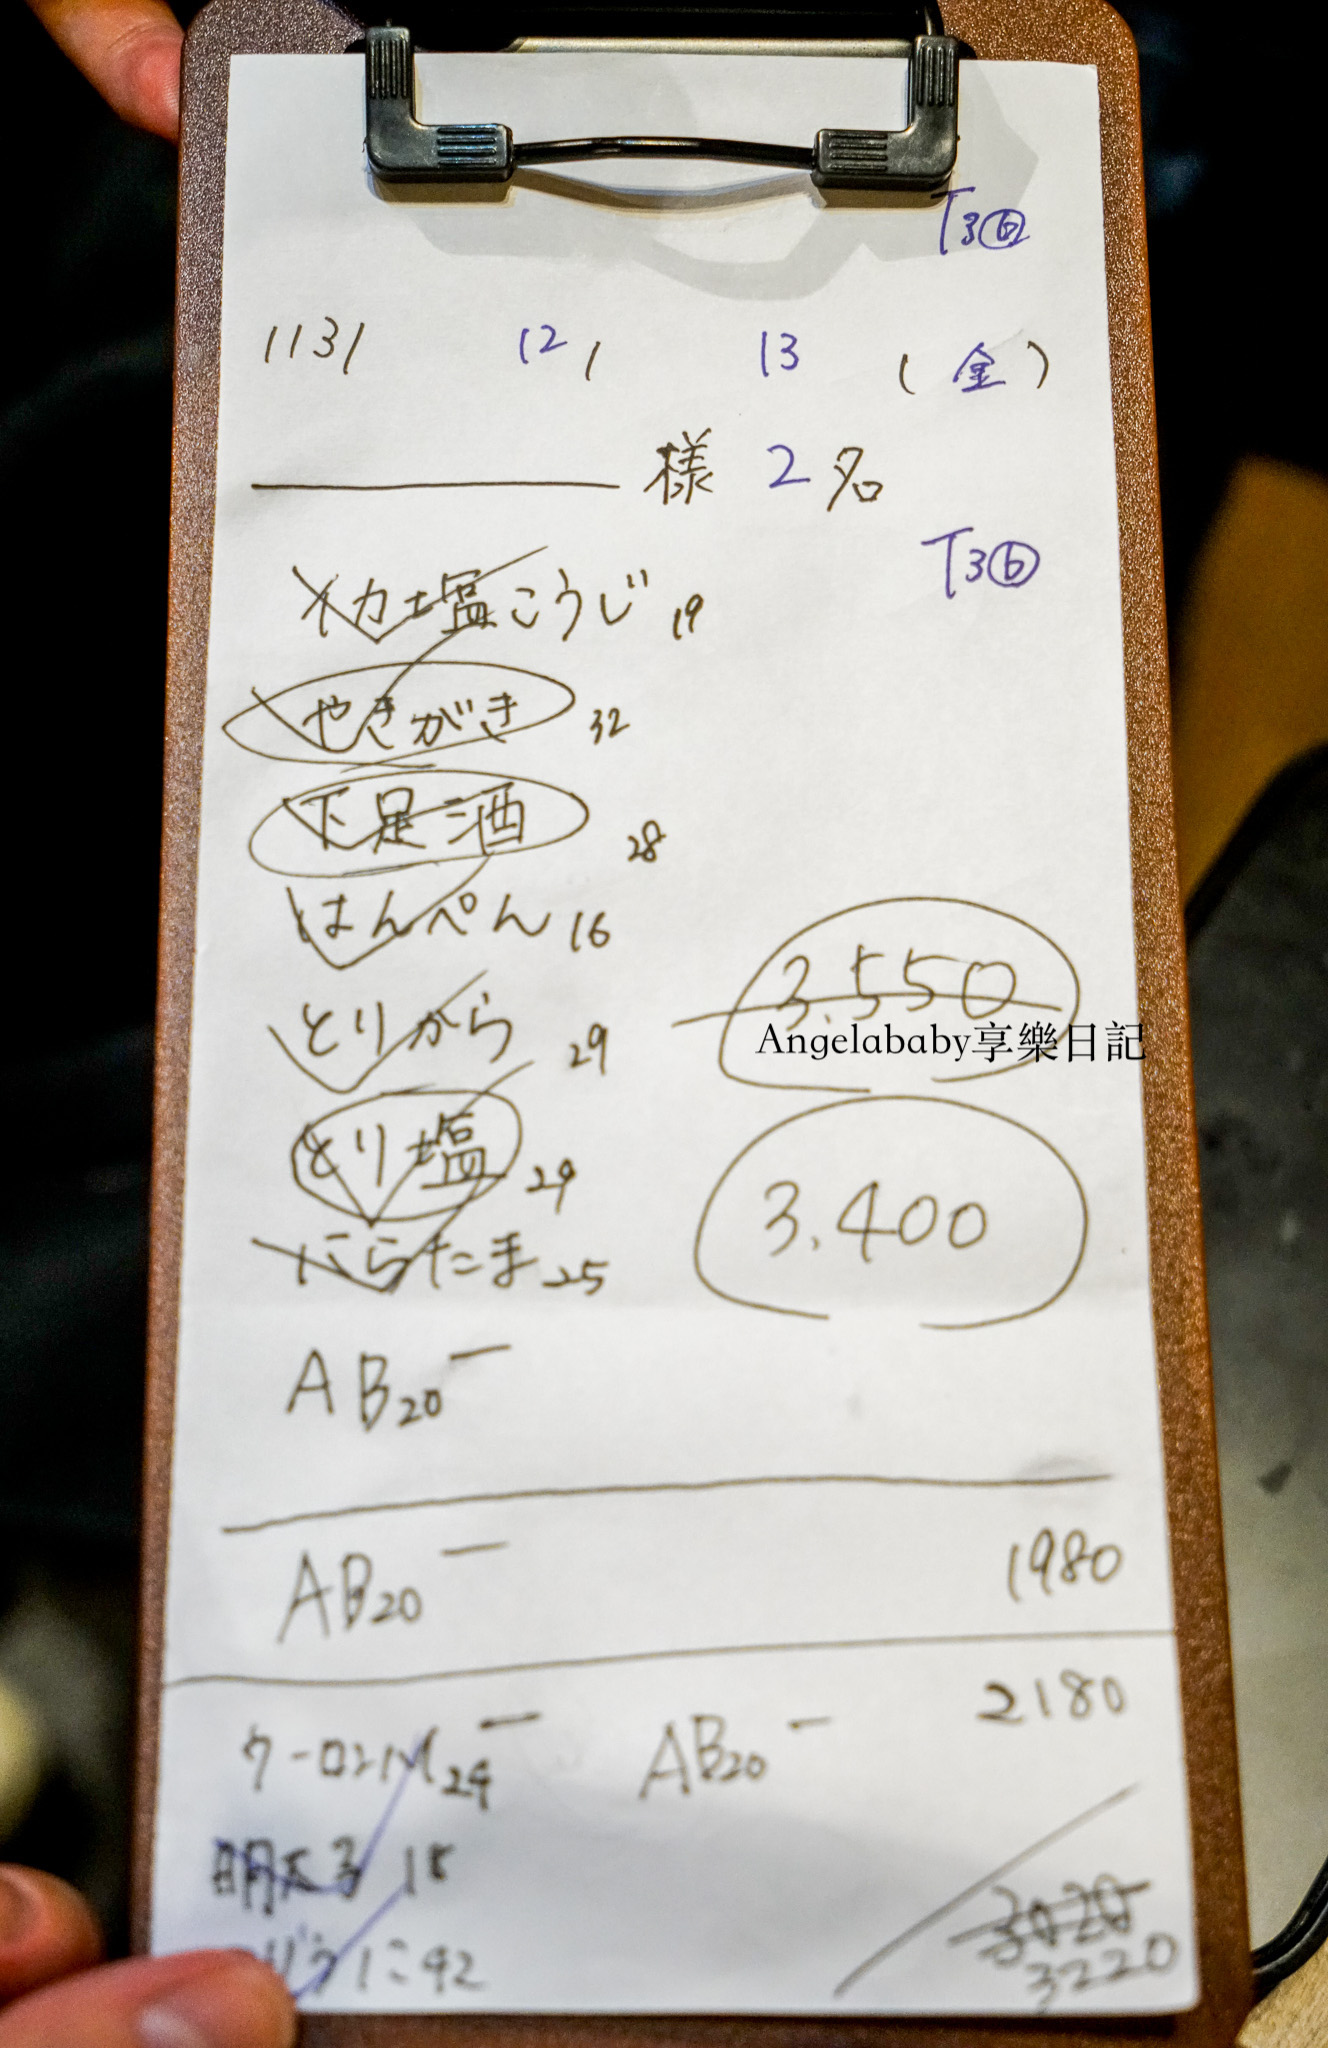 T3ⓑ
1131 12/ 13 (金)
様 2名
T3ⓑ
イカ塩こうじ 19
やきがき 32
下足酒 28
はんぺん 16
とりから 29
3.550
Angelababy享樂日記
とり塩 29
3.400
にらたま 25
AB20 一
AB20 一 1980
2180
ウーロンM24 一 AB20 一
明太子 18
3020
うに42
3220